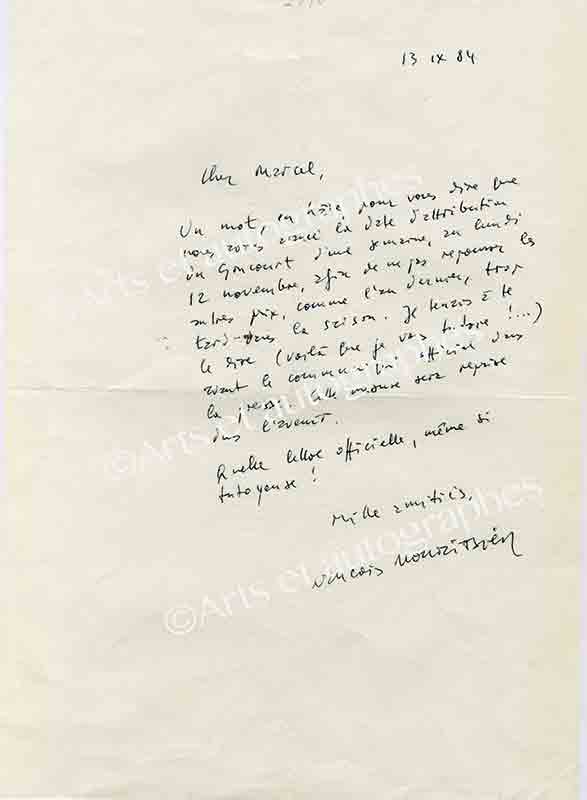 13 IX 84
Cher Marcel,
Un mot, en hâte, pour vous dire que
nous avons avancé la date d'attribution
du Goncourt d'une semaine, au lundi
12 novembre, afin de ne pas repousser les
autres prix, comme l'an dernier, trop
tard dans la saison. Je tenais à te
le dire (voilà que je vais tutoyer !...)
avant le communiqué officiel dans
la presse. Cette mesure sera reprise
dans l'avenir.
Quelle lettre officielle, même si
tutoyeuse !
Mille amitiés,
François Nourissier
©Arts et autographes
©Arts et autographes
©Arts et autographes